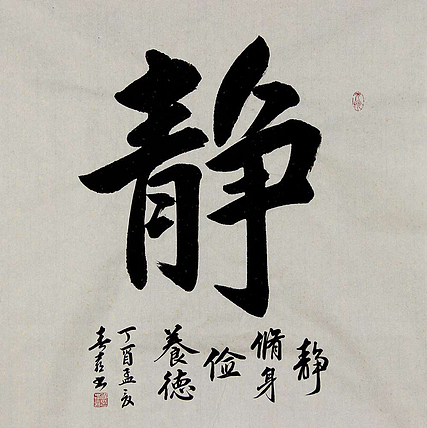 静
静
脩身
俭
養德
丁酉孟夏